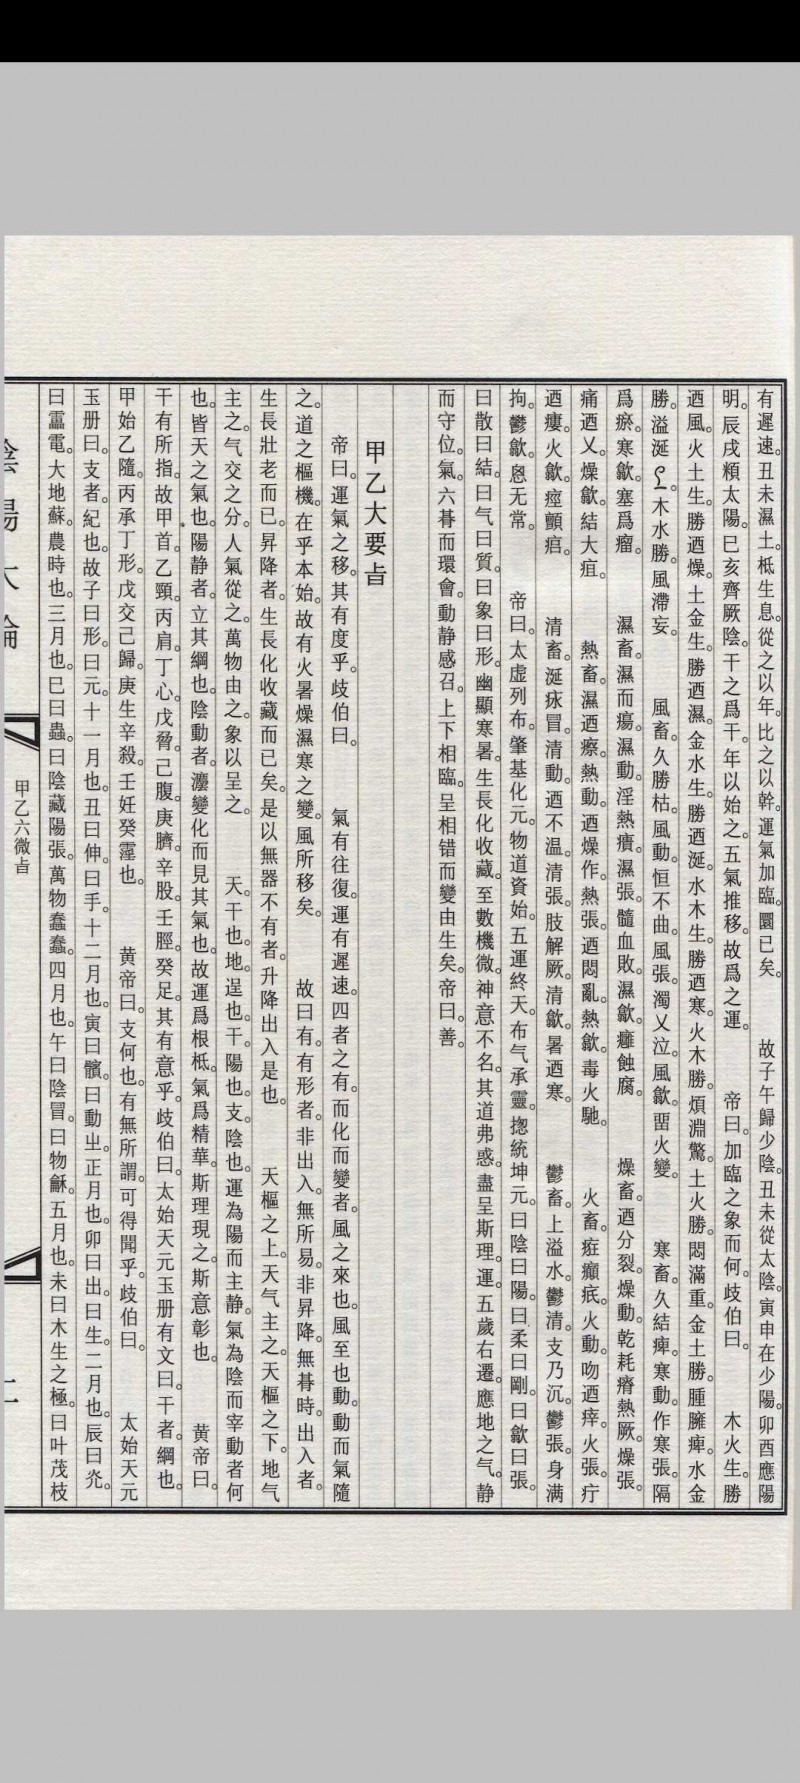 有遲速。丑未濕土。柢生息。從之以年。比之以幹。運氣加臨。圜已矣。　故子午歸少陰。丑未從太陰。寅申在少陽。卯酉應陽
明。辰戌頪太陽。巳亥齊厥陰。干之爲干。年以始之。五氣推移。故爲之運。　帝曰。加臨之象而何。歧伯曰。　木火生。勝
迺風。火土生。勝迺燥。土金生。勝迺濕。金水生。勝迺涎。水木生。勝迺寒。火木勝。煩淵驚。土火勝。悶滿重。金土勝。腫臃痺。水金
勝。溢涎。木水勝。風滯妄。　風畜。久勝枯。風動。恒不曲。風張。濁乂泣。風歛。畱火變。　寒畜。久結痺。寒動。作寒張。隔
爲瘀。寒歛。塞爲瘤。　濕畜。濕而瘍。濕動。淫熱癀。濕張。髓血敗。濕歛。癰蝕腐。　燥畜。迺分裂。燥動。乾耗瘠熱厥。燥張。
痛迺乂。燥歛。結大疽。　熱畜。濕迺瘵。熱動。迺燥作。熱張。迺悶亂。熱歛。毒火馳。　火畜。疰癲疷。火動。吻迺瘁。火張。疔
迺瘻。火歛。痙顫㾂。　清畜。涎痰冒。清動。迺不温。清張。肢解厥。清歛。暑迺寒。　鬱畜。上溢水。鬱清。支乃沉。鬱張。身满
拘。鬱歛。恖无常。　帝曰。太虚列布。肇基化元。物道資始。五運終天。布气承靈。揔統坤元。曰陰曰陽。曰柔曰剛。曰歛曰張。
曰散曰結。曰气曰質。曰象曰形。幽顯寒暑。生長化收藏。至數機微。神意不名。其道弗惑。盡呈斯理。運。五歲右遷。應地之气。静
而守位。氣。六朞而環會。動静感召。上下相臨。呈相错而變由生矣。帝曰。善。
甲乙大要㫖
帝曰。運氣之移。其有度乎。歧伯曰。　氣有往復。運有遲速。四者之有。而化而變者。風之來也。風至也動。動而氣隨
之。道之樞機。在乎本始。故有火暑燥濕寒之變。風所移矣。　故曰有。有形者。非出入。無所易。非昇降。無朞時。出入者。
生長壯老而已。昇降者。生長化收藏而已矣。是以無器不有者。升降出入是也。　天樞之上。天气主之。天樞之下。地气
主之。气交之分。人氣從之。萬物由之。象以呈之。　天。干也。地。逞也。干。陽也。支。陰也。運為陽而主静。氣為陰而宰動者何
也。皆天之氣也。陽静者。立其綱也。陰動者。灋變化而見其氣也。故運爲根柢。氣爲精華。斯理現之。斯意彰也。　黄帝曰。
干有所指。故甲首。乙頸。丙肩。丁心。戊脅。己腹。庚臍。辛股。壬脛。癸足。其有意乎。歧伯曰。太始天元玉册有文曰。干者。綱也。
甲始乙隨。丙承丁形。戊交己歸。庚生辛殺。壬妊癸霪也。　黄帝曰。支何也。有無所謂。可得聞乎。歧伯曰。　太始天元
玉册曰。支者。紀也。故子曰形。曰元。十一月也。丑曰伸。曰手。十二月也。寅曰髕。曰動㞢。正月也。卯曰出。曰生。二月也。辰曰灮。
曰靁電。大地蘇。農時也。三月也。巳曰蟲。曰陰藏陽張。萬物蠢蠢。四月也。午曰陰冒。曰物龢。五月也。未曰木生之極。曰叶茂枝
陰陽大論
甲乙六微㫖